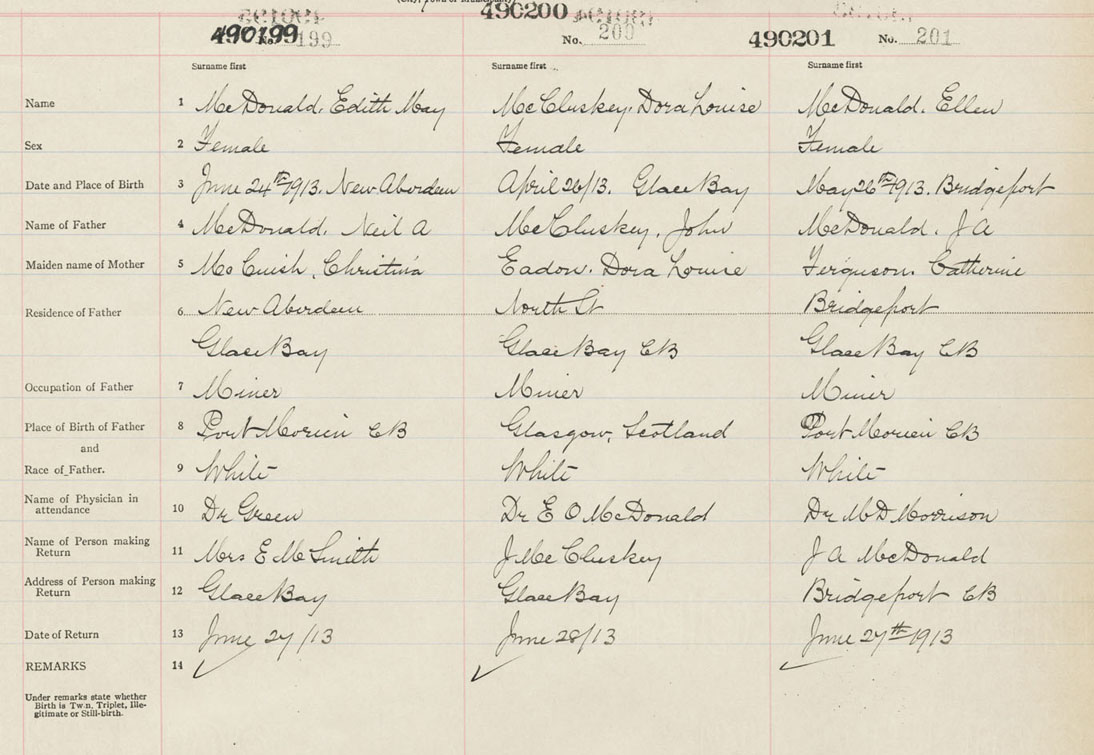 490199 No. 199 490200 No. 200 490201 No. 201
Surname first Surname first Surname first
Name 1 McDonald. Edith May McCluskey. Dora Louise McDonald. Ellen
Sex 2 Female Female Female
Date and Place of Birth 3 June 24th 1913. New Aberdeen April 26/13. Glace Bay May 26th 1913. Bridgeport
Name of Father 4 McDonald. Neil A McCluskey. John McDonald. J A
Maiden name of Mother 5 McCuish, Christina Eadon. Dora Louise Ferguson. Catherine
Residence of Father 6 New Aberdeen North St Bridgeport
Glace Bay Glace Bay CB Glace Bay CB
Occupation of Father 7 Miner Miner Miner
Place of Birth of Father 8 Port Morien CB Glasgow, Scotland Port Morien CB
and
Race of Father. 9 White White White
Name of Physician in
attendance 10 Dr Green Dr E O McDonald Dr M D Morrison
Name of Person making
Return 11 Mrs E Mc Smith J McCluskey J A McDonald
Address of Person making
Return 12 Glace Bay Glace Bay Bridgeport CB
Date of Return 13 June 27/13 June 28/13 June 27th 1913
REMARKS 14
Under remarks state whether
Birth is Twin, Triplet, Ille-
gitimate or Still-birth.